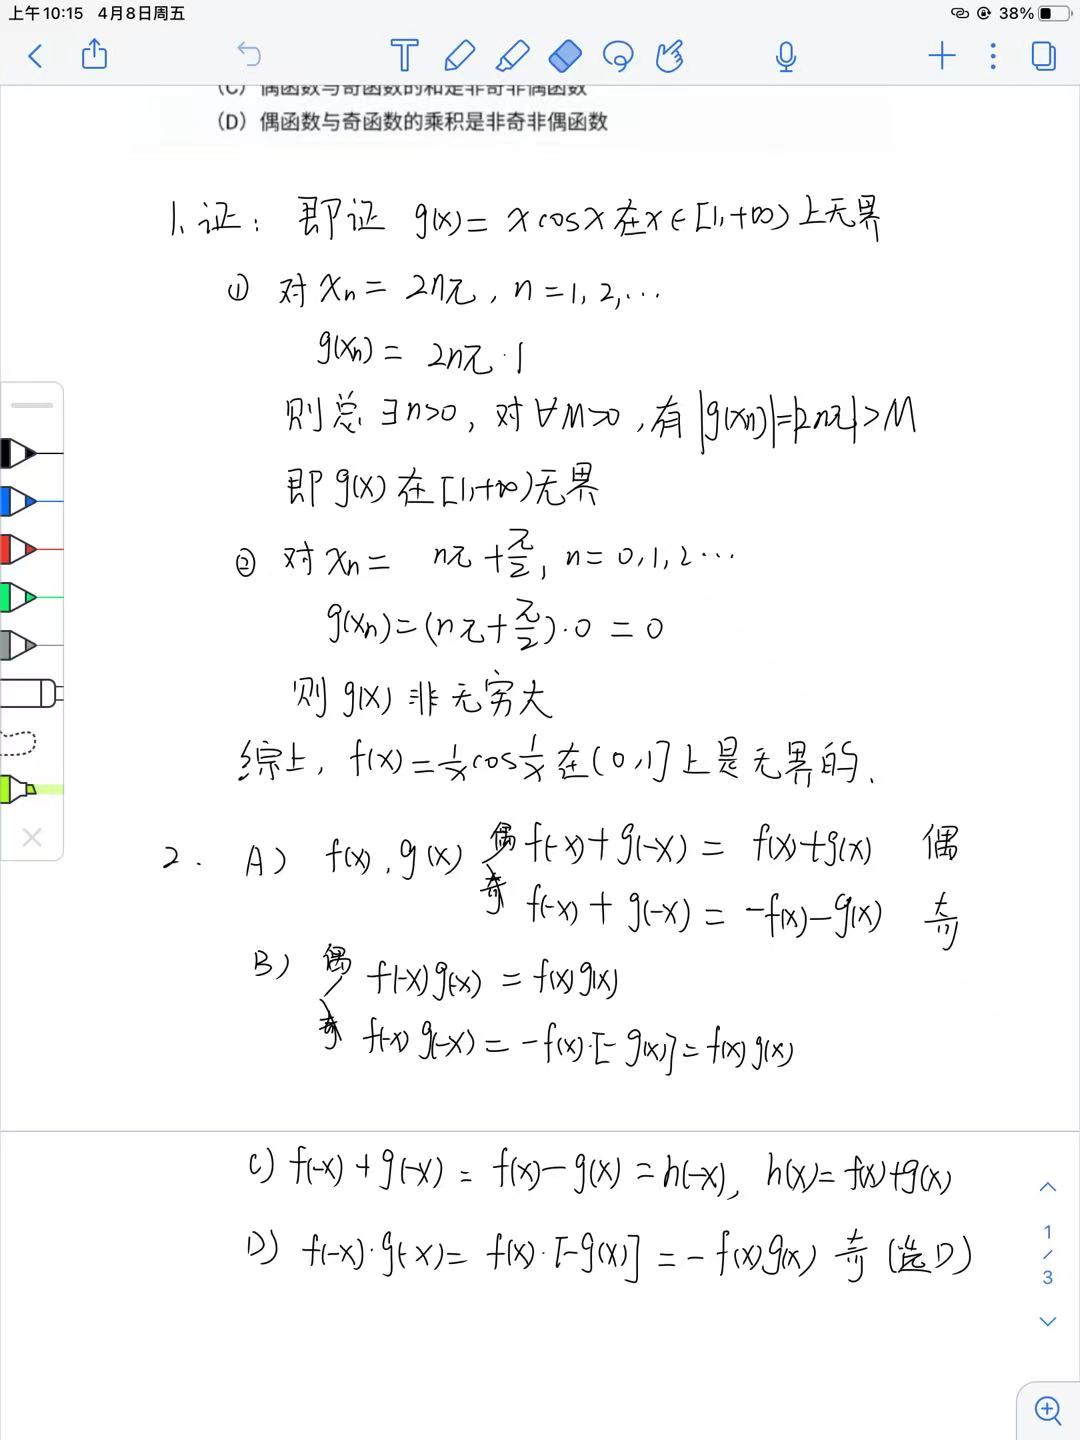 上午10:15 4月8日周五
38%
(C) 偶函数与奇函数的和是非奇非偶函数
(D) 偶函数与奇函数的乘积是非奇非偶函数
1. 证: 即证 g(x)= x cosx 在x∈[1,+∞) 上无界
① 对 xn = 2nπ, n=1, 2, …
g(xn) = 2nπ·1
则总 ∃n>0, 对 ∀M>0, 有 |g(xn)|=|2nπ|>M
即 g(x) 在 [1,+∞)无界
② 对 xn = nπ+π/2, n= 0, 1, 2 …
g(xn)=(nπ+π/2)·0 = 0
则 g(x) 非无穷大
综上, f(x)=1/x cos1/x 在(0,1]上是无界的.
2. A) f(x), g(x) 偶 f(-x)+g(-x) = f(x)+g(x) 偶
奇 f(-x) + g(-x) = -f(x)-g(x) 奇
B) 偶 f(-x)g(-x) = f(x)g(x)
奇 f(-x) g(-x) = -f(x)·[-g(x)] = f(x)g(x)
C) f(-x)+g(-x) = f(x)-g(x) = h(-x), h(x)= f(x)+g(x)
D) f(-x)·g(-x)= f(x)·[-g(x)] = -f(x)g(x) 奇 (选D)
1
/
3